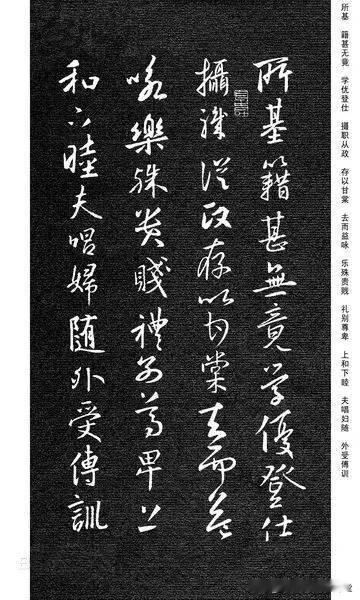 所基 籍甚无竟 学优登仕 摄职从政 存以甘棠 去而益咏 乐殊贵贱 礼别尊卑 上和下睦 夫唱妇随 外受傅训
所基籍甚無竟學優登仕
攝職從政存以甘棠去而益
咏樂殊貴賤禮别尊卑上
和下睦夫唱婦随外受傅訓